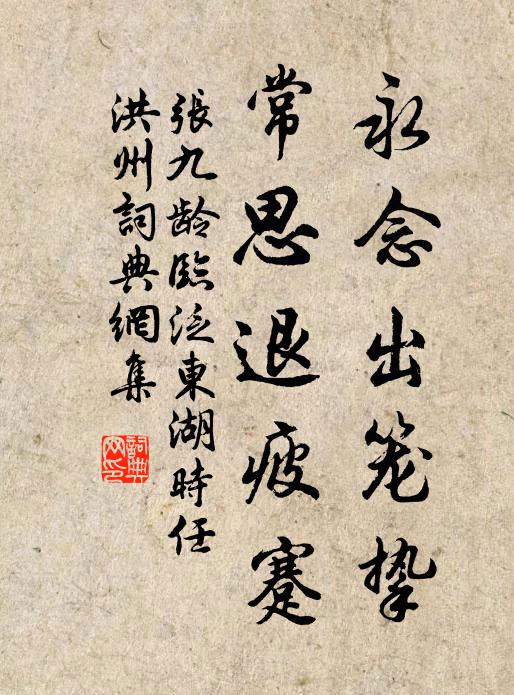 永念出笼挚
常思退疲蹇
張九龄臨泛東湖時任
洪州詞典網集
詞典網印